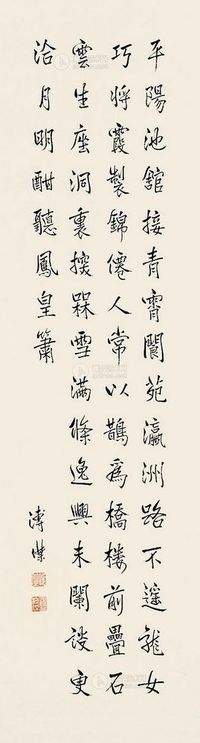 平陽池舘接青霄閬苑瀛洲路不遥龍女
巧將霞製錦僊人常以鵲爲橋樓前疊石
雲生座洞裏探槑雪滿條逸興未闌談更
洽月明酣聽鳳皇簫
溥傑